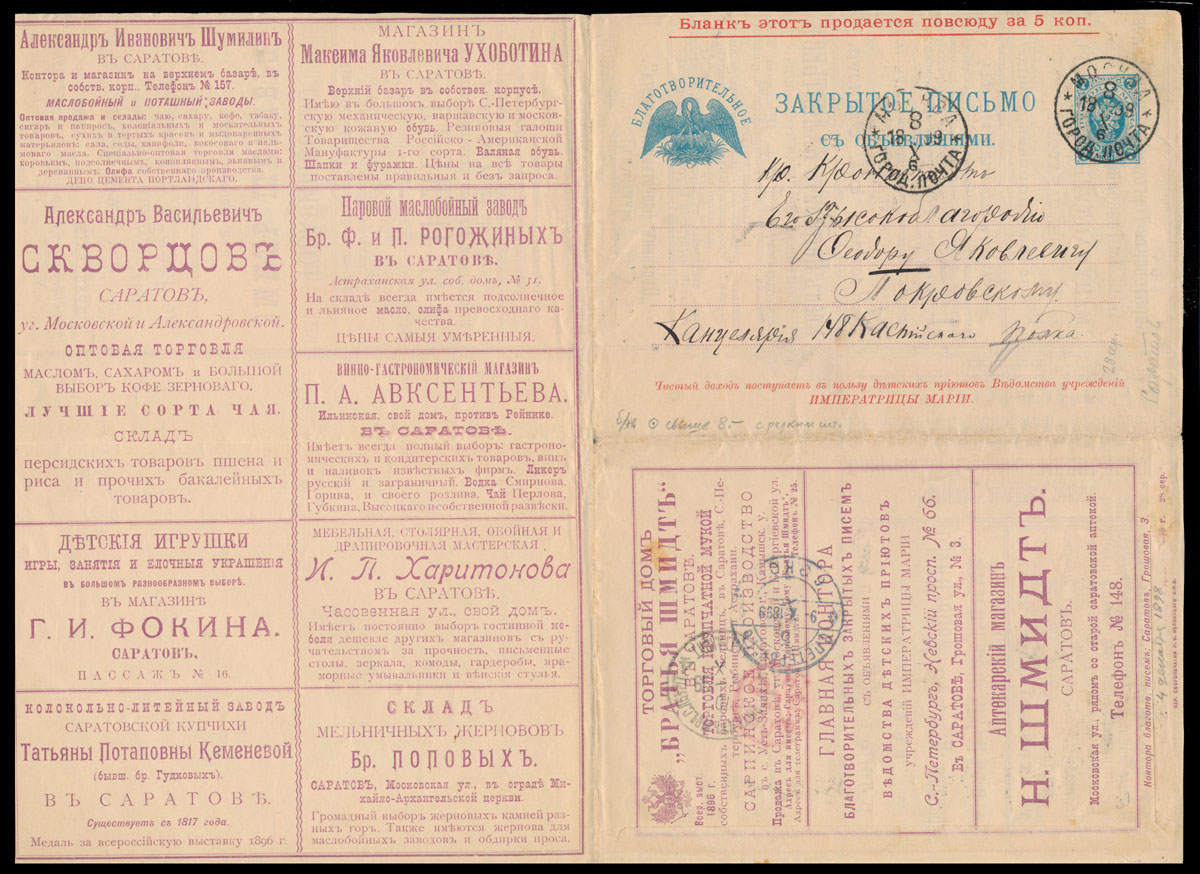 Александръ Ивановичъ Шумилинъ
ВЪ САРАТОВѢ.
Контора и магазинъ на верхнемъ базарѣ, въ
собств. корп.. Телефонъ № 157.
МАСЛОБОЙНЫЙ и ПОТАШНЫЙ ЗАВОДЫ.
Оптовая продажа и склады: чаю, сахару, кофе, табаку,
сигаръ и папиросъ, колоніальныхъ и москательныхъ
товаровъ, сухихъ и тертыхъ красокъ и мыловаренныхъ
матерьяловъ: сала, соды, канифоли, кокосоваго и паль-
моваго масла. Спеціально-оптовая торговля маслами:
коровьимъ, подсолнечнымъ, коноплянымъ, льнянымъ и
деревяннымъ. Олифа собственнаго производства.
ДЕПО ЦЕМЕНТА ПОРТЛАНДСКАГО.
Александръ Васильевичъ
СКВОРЦОВЪ
САРАТОВЪ,
уг. Московской и Александровской.
ОПТОВАЯ ТОРГОВЛЯ
МАСЛОМЪ, САХАРОМЪ и БОЛЬШОЙ
ВЫБОРЪ КОФЕ ЗЕРНОВАГО.
ЛУЧШІЕ СОРТА ЧАЯ.
СКЛАДЪ
персидскихъ товаровъ пшена и
риса и прочихъ бакалейныхъ
товаровъ.
ДѢТСКІЯ ИГРУШКИ
ИГРЫ, ЗАНЯТІЯ и ЕЛОЧНЫЯ УКРАШЕНІЯ
ВЪ БОЛЬШОМЪ РАЗНООБРАЗНОМЪ ВЫБОРѢ.
ВЪ МАГАЗИНѢ
Г. И. ФОКИНА.
САРАТОВЪ.
ПАССАЖЪ № 16.
КОЛОКОЛЬНО-ЛИТЕЙНЫЙ ЗАВОДЪ
САРАТОВСКОЙ КУПЧИХИ
Татьяны Потаповны Кеменевой
(бывш. бр. Гудковыхъ).
ВЪ САРАТОВѢ.
Существуетъ съ 1817 года.
Медаль за всероссійскую выставку 1896 г.
МАГАЗИНЪ
Максима Яковлевича УХОБОТИНА
ВЪ САРАТОВѢ.
Верхній базаръ въ собствен. корпусѣ.
Имѣю въ большомъ выборѣ С.-Петербург-
скую механическую, варшавскую и москов-
скую кожаную обувь. Резиновыя галоши
Товарищества Россійско-Американской
Мануфактуры 1-го сорта. Валяная обувь.
Шапки и фуражки. Цѣны на всѣ товары
поставлены правильныя и безъ запроса.
Паровой маслобойный заводъ
Бр. Ф. и П. РОГОЖИНЫХЪ
ВЪ САРАТОВѢ.
Астраханская ул. соб. домъ, № 51.
На складѣ всегда имѣется подсолнечное
и льняное масло, олифа превосходнаго ка-
чества.
ЦѢНЫ САМЫЯ УМѢРЕННЫЯ.
ВИННО-ГАСТРОНОМИЧЕСКІЙ МАГАЗИНЪ
П. А. АВКСЕНТЬЕВА.
Ильинская, свой домъ, противъ Рейнике.
ВЪ САРАТОВѢ.
Имѣетъ всегда полный выборъ: гастроно-
мическихъ и кондитерскихъ товаровъ, винъ
и наливокъ извѣстныхъ фирмъ. Ликеръ
русскій и заграничный. Водка Смирнова,
Горина, и своего розлива. Чай Перлова,
Губкина, Высоцкаго и собственной развѣски.
МЕБЕЛЬНАЯ, СТОЛЯРНАЯ, ОБОЙНАЯ И
ДРАПИРОВОЧНАЯ МАСТЕРСКАЯ
И. П. Харитонова
ВЪ САРАТОВѢ.
Часовенная ул., свой домъ.
Имѣетъ постоянно выборъ гостинной ме-
бели дешевле другихъ магазиновъ съ ру-
чательствомъ за прочность, письменные
столы, зеркала, комоды, гардеробы, мра-
морные умывальники и вѣнскія стулья.
СКЛАДЪ
МЕЛЬНИЧНЫХЪ ЖЕРНОВОВЪ
Бр. ПОПОВЫХЪ.
САРАТОВЪ, Московская ул., въ оградѣ Ми-
хайло-Архангельской церкви.
Громадный выборъ жерновыхъ камней раз-
ныхъ горъ. Также имѣются жернова для
маслобойныхъ заводовъ и обдирки проса.
Бланкъ этотъ продается повсюду за 5 коп.
БЛАГОТВОРИТЕЛЬНОЕ
ЗАКРЫТОЕ ПИСЬМО
СЪ ОБЪЯВЛЕНІЯМИ.
МОСКВА
8
18 X 99
6
ГОРОД. ПОЧТА
МОСКВА
8
18 X 99
6
ГОРОД. ПОЧТА
Его Высокоблагородію
Ѳеодору Яковлевичу
Покровскому.
Канцелярія 148 Каспійскаго Полка.
28 сер.
Саратов
Чистый доходъ поступаетъ въ пользу дѣтскихъ пріютовъ Вѣдомства учрежденій
ИМПЕРАТРИЦЫ МАРІИ.
свыше 8.- с редким шт.
ТОРГОВЫЙ ДОМЪ
„БРАТЬЯ ШМИДТЪ“
ВЪ САРАТОВѢ.
Всер. выст.
1896 г.
ТОРГОВЛЯ КРУПЧАТНОЙ МУКОЙ
САРПИНСКОЕ ПРОИЗВОДСТВО
Телефонъ № 25.
ГЛАВНАЯ КОНТОРА
БЛАГОТВОРИТЕЛЬНЫХЪ ЗАКРЫТЫХЪ ПИСЕМЪ
СЪ ОБЪЯВЛЕНІЯМИ
ВѢДОМСТВА ДѢТСКИХЪ ПРІЮТОВЪ
УЧРЕЖДЕНІЙ ИМПЕРАТРИЦЫ МАРІИ
С.-Петербургъ, Невскій просп. № 66.
Въ САРАТОВѢ, Грошовая ул., № 3.
Аптекарскій магазинъ
Н. ШМИДТЪ.
САРАТОВЪ.
Московская ул., рядомъ со старой саратовской аптекой.
Телефонъ № 148.
Контора благотв. писемъ: Саратовъ, Грошовая, 3.
28 сер.